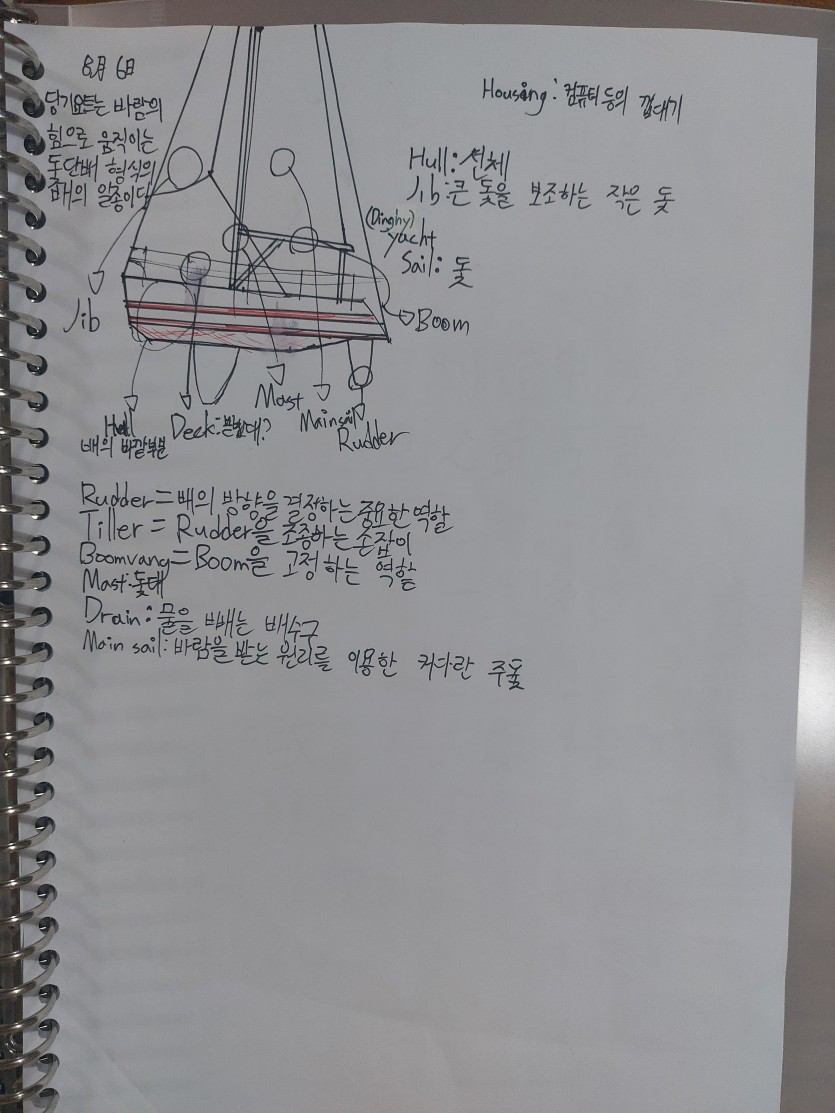 8月 6日
Housing: 컴퓨터 등의 껍대기
딩기요트는 바람의
힘으로 움직이는
돛단배 형식의
배의 일종이다
Hull: 선체
Jib: 큰 돛을 보조하는 작은 돛
(Dinghy)
yacht
Sail: 돛
Jib
Boom
Mast
Main sail
Rudder
Hull
배의 바깥부분
Deck:
Rudder=배의 방향을 결정하는 중요한 역할
Tiller = Rudder을 조종하는 손잡이
Boomvang=Boom을 고정하는 역할
Mast:돛대
Drain: 물을 빼는 배수구
Main sail: 바람을 받는 원리를 이용한 커다란 주돛